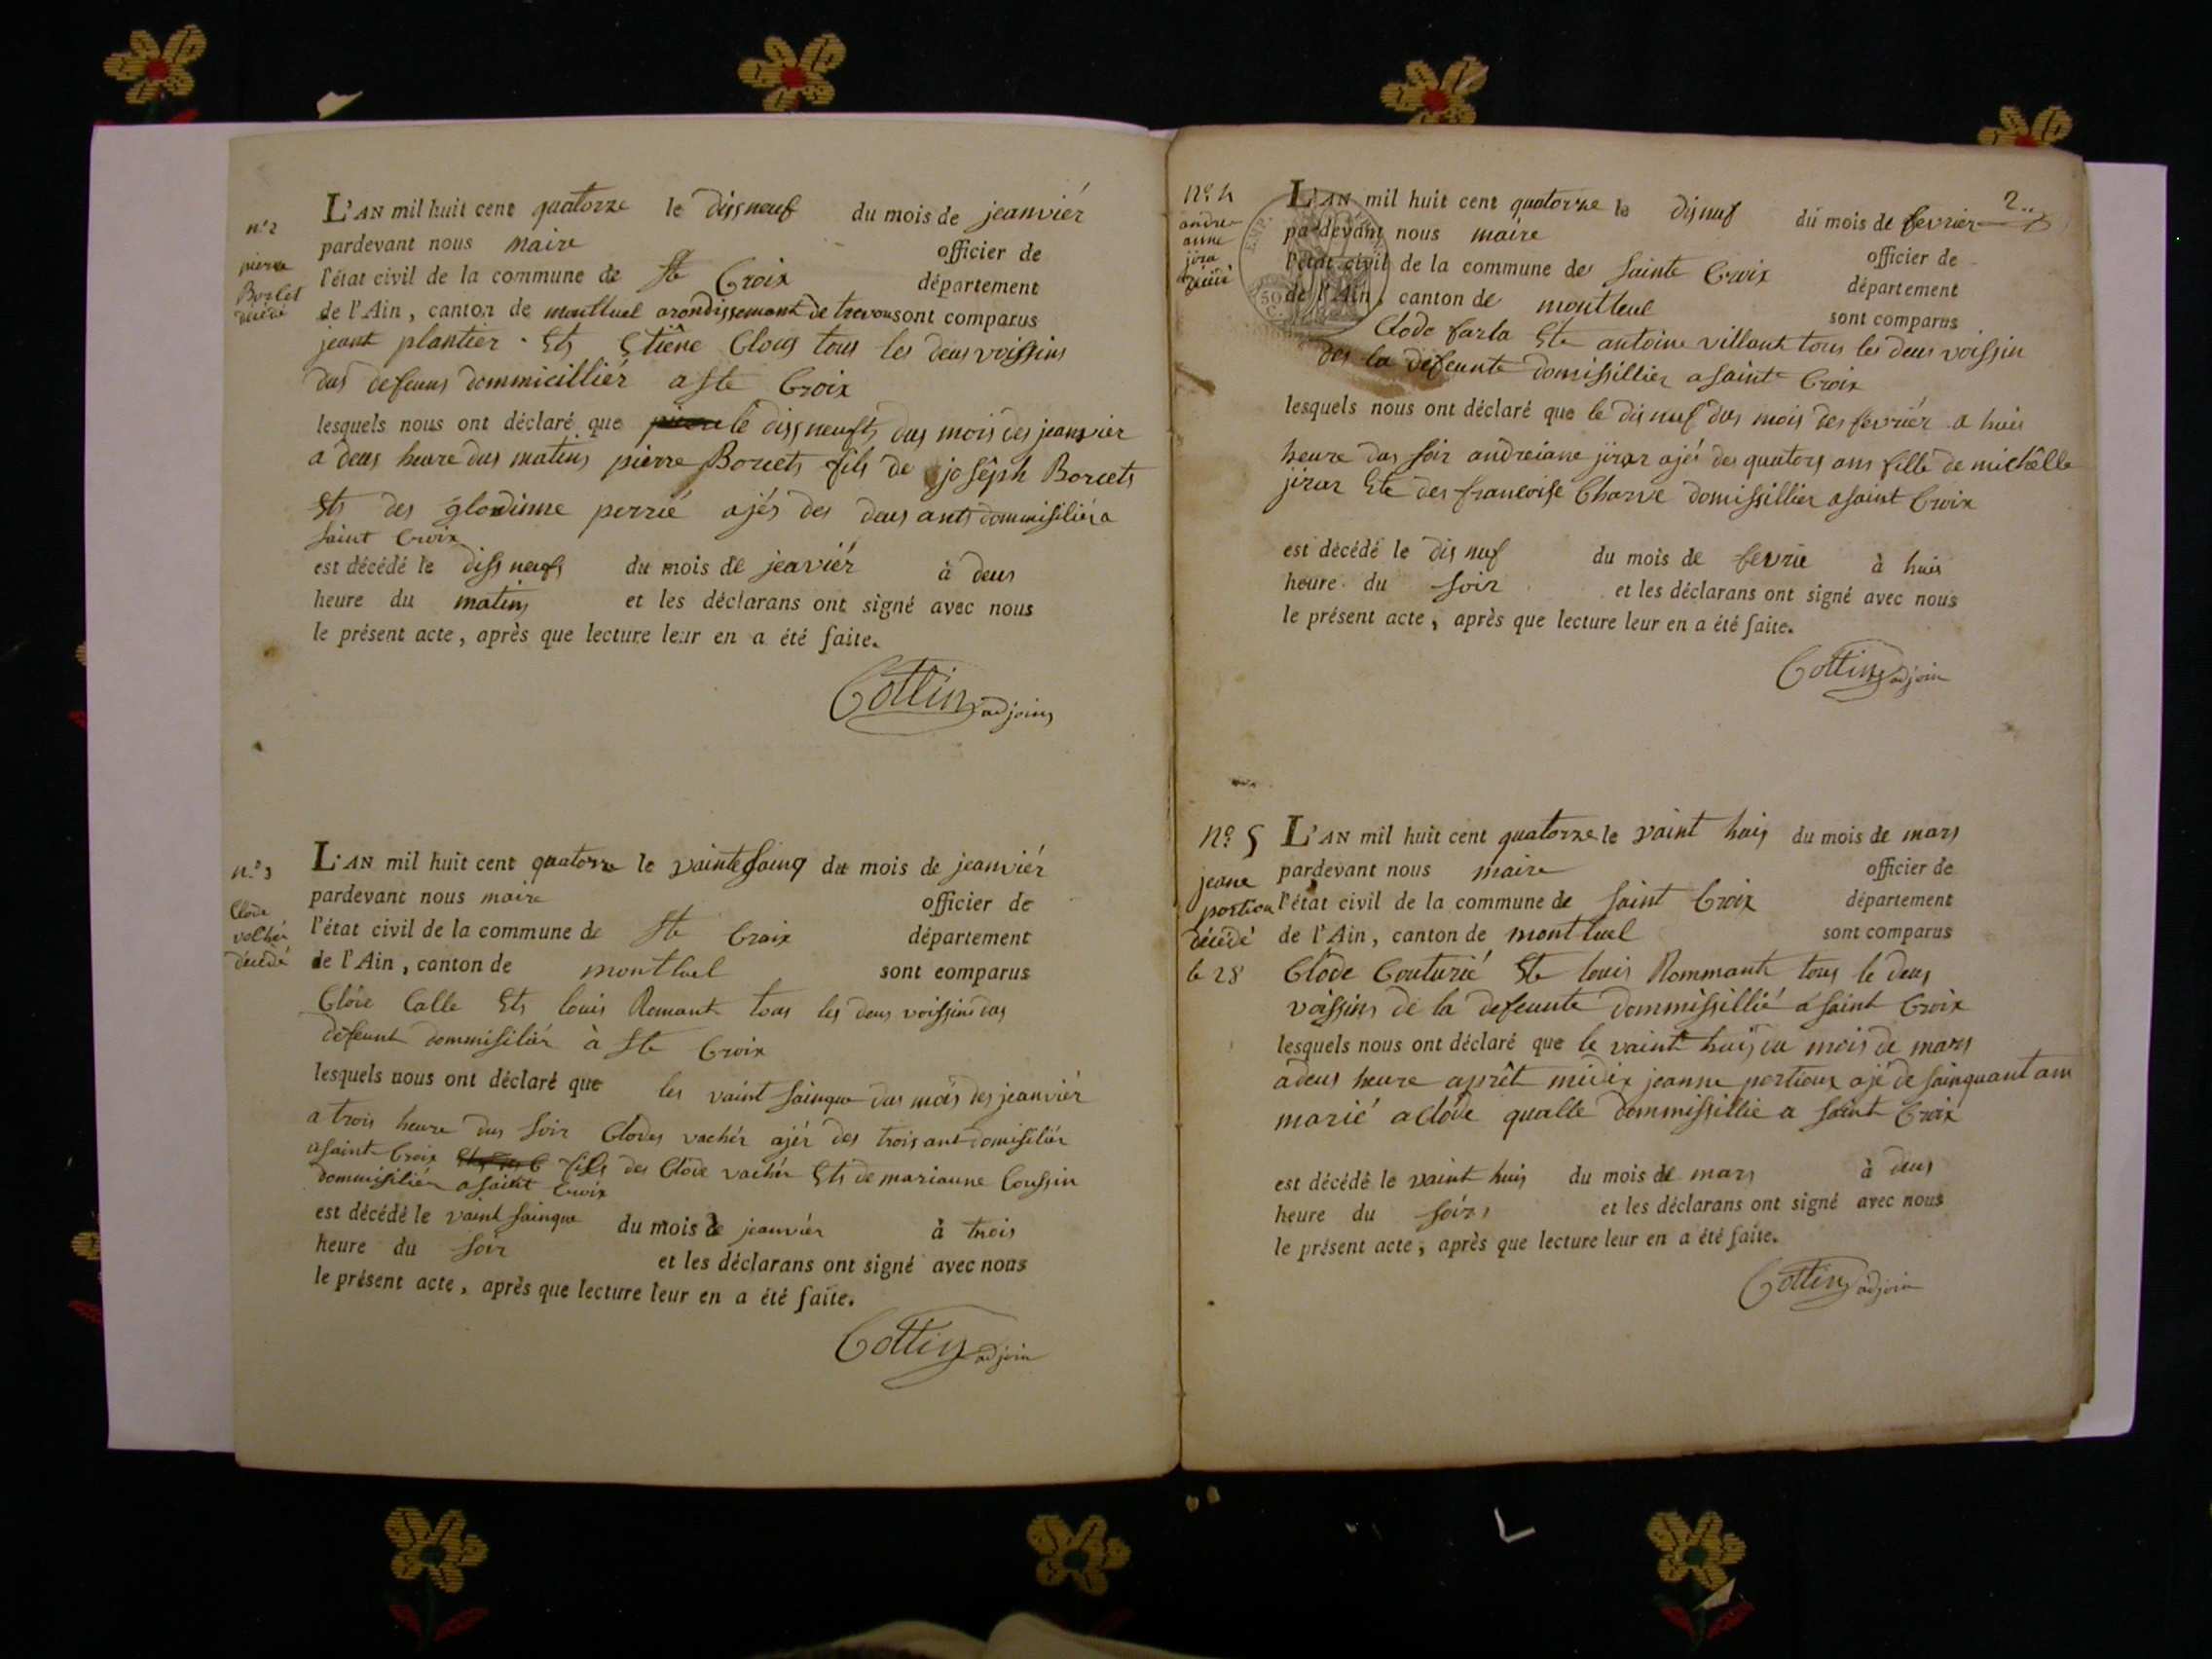 n.º 2
pierre
Borlet
décédé
L'AN mil huit cent quatorze le dissneuf du mois de jeanviér
pardevant nous maire officier de
l'état civil de la commune de Ste Croix département
de l'Ain, canton de montluel arondissemant de trevou sont comparus
jeant plantier Ets Etiêne Cloug tous les deus voissins
dus defeuns dommicilliér a Ste Croix
lesquels nous ont déclaré que le dissneufts dus mois des jeanvier
a deus heure dus matins pierre Borcets fils de joséph Borcets
Ets des glodinne perrié ajés des deus ants dommisiliér a
saint Croix
est décédé le dissneufs du mois de jeaviér à deus
heure du matins et les déclarans ont signé avec nous
le présent acte, après que lecture leur en a été faite.
Cottin adjoins
n.º 3
Clode
vachér
décédé
L'AN mil huit cent quatorze le vainte sainq du mois de jeanviér
pardevant nous maire officier de
l'état civil de la commune de Ste Croix département
de l'Ain, canton de montluel sont comparus
Clôde Calle Ets louis Romant tous les deus voissins dus
defeunt dommisiliér à Ste Croix
lesquels nous ont déclaré que les vaint sainque dus mois des jeanviér
a trois heure dus soir Clodes vachér ajér des trois ant domisiliér
a saint Croix fils des Clôde vachér Ets de marianne Coussin
dommisiliér a saint Croix
est décédé le vaint sainque du mois de jeanviér à trois
heure du soir et les déclarans ont signé avec nous
le présent acte, après que lecture leur en a été faite.
Cottin adjoin
2
Nº. 4
andre
anne
jira
décédé
EMP.
50
C.
L'AN mil huit cent quatorze le disnuf du mois de fevrier
pardevant nous maire officier de
l'état civil de la commune de sainte Croix département
de l'Ain, canton de montleul sont comparus
Clode farla Ete antoine villant tous les deus voissin
des la defeunte domissillier a saint Croix
lesquels nous ont déclaré que le disnuf dus mois des fevriér a huis
heure dus soir andreiane jirar ajé des quators ans fille de michêlle
jirar Ete des francoise Charve domissillier a saint Croix
est décédé le disnuf du mois de fevrie à huis
heure du soir et les déclarans ont signé avec nous
le présent acte, après que lecture leur en a été faite.
Cottin adjoin
Nº. 5
jeane
portiou
décédé
le 28
L'AN mil huit cent quatorze le vaint huis du mois de mars
pardevant nous maire officier de
l'état civil de la commune de saint Croix département
de l'Ain, canton de montluel sont comparus
Clôde Couturié Ete louis Rommant tous le deus
voissins de la defeunte dommissillié a saint Croix
lesquels nous ont déclaré que le vaint huis du mois de mars
a deus heure aprêt midix jeanne portioux ajé de sainquant ans
marié a Clode qualle dommissillie a saint Croix
est décédé le vaint huis du mois de mars à deus
heure du soirs et les déclarans ont signé avec nous
le présent acte, après que lecture leur en a été faite.
Cottin adjoin